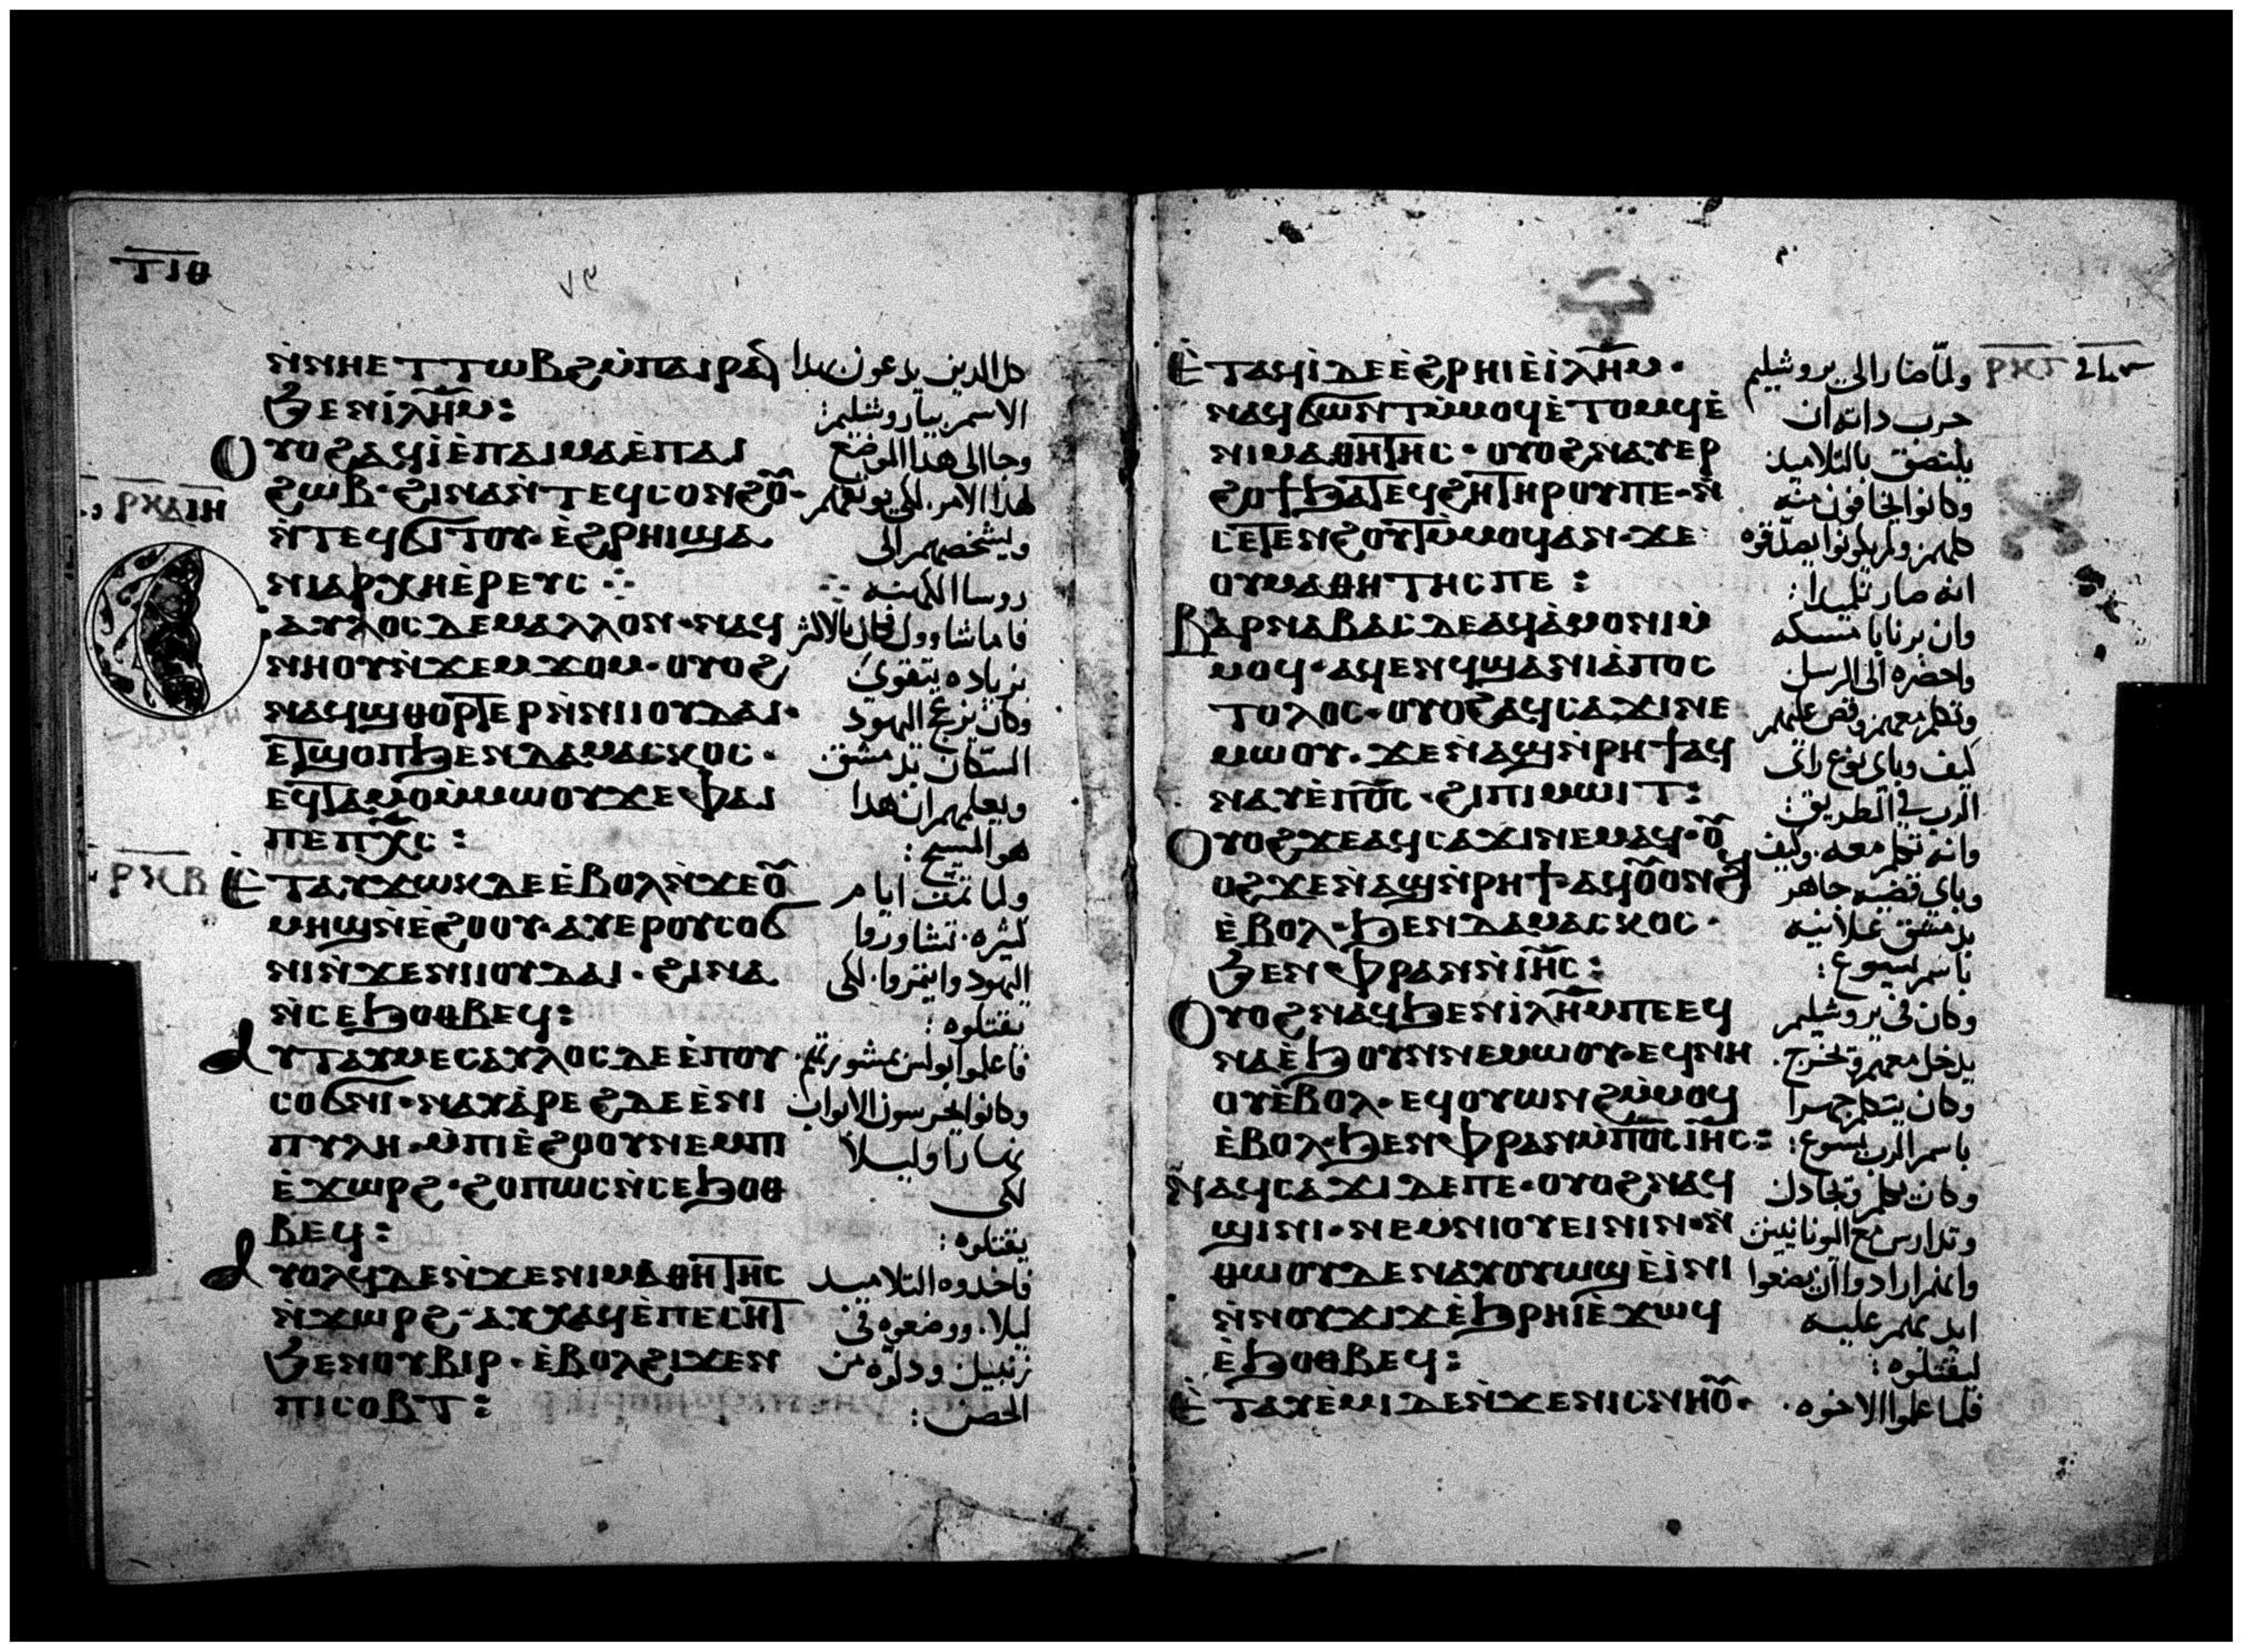 ⲧⲓⲑ
ⲛ̀ⲛⲏⲉⲧⲧⲱⲃϩⲙ̀ⲡⲁⲓⲣⲁⲛ كل الدين يدعون بهدا
ϧⲉⲛⲓ̀ⲗⲏ̅ⲙ: الاسم بياروشليم:
ⲟⲩⲟϩⲁϥⲓ̀ⲉ̀ⲡⲁⲓⲙⲁⲉ̀ⲡⲁⲓ وجا الى هدا الموضع
ϩⲱⲃ·ϩⲓⲛⲁⲛ̀ⲧⲉϥⲥⲟⲛϩⲟⲩ· لهدا الامر· لكي يوثقهم
ⲛ̀ⲧⲉϥϭⲓⲧⲟⲩ·ⲉ̀ϩⲣⲏⲓϣⲁ ويشخصهم الى
ⲛⲓⲁⲣⲭⲏⲉ̀ⲣⲉⲩⲥ ⁘ روسا الكهنه ⁘
ⲥⲁⲩⲗⲟⲥⲇⲉⲙⲁⲗⲗⲟⲛ·ⲛⲁϥ فاما شاوول فكان بالاكثر
ⲛⲏⲟⲩⲛ̀ϫⲉⲙϫⲟⲙ·ⲟⲩⲟϩ بزياده يتقوى
ⲛⲁϥϣⲑⲟⲣⲧⲉⲣⲛ̀ⲛⲓⲓⲟⲩⲇⲁⲓ· وكان يزعج اليهود
ⲉⲧϣⲟⲡϧⲉⲛⲇⲁⲙⲁⲥⲕⲟⲥ· السكان بدمشق
ⲉϥⲧⲁⲙⲟⲙ̀ⲙⲱⲟⲩϫⲉⲫⲁⲓ ويعلمهم ان هدا
ⲡⲉⲡⲭ̅ⲥ: هو المسيح:
ⲣⲕⲃ ⲉ̀ⲧⲁⲩϫⲱⲕⲇⲉⲉ̀ⲃⲟⲗⲛ̀ϫⲉⲟⲩ ولما تمت ايام
ⲙⲏϣⲛ̀ⲉ̀ϩⲟⲟⲩ·ⲁⲩⲉⲣⲟⲩⲥⲟϭ كثيره· تشاوروا
ⲛⲓⲛ̀ϫⲉⲛⲓⲓⲟⲩⲇⲁⲓ·ϩⲓⲛⲁ اليهود وايتمروا· لكى
ⲛ̀ⲥⲉϧⲟⲑⲃⲉϥ: يقتلوه:
ⲁⲩⲧⲁⲩⲙⲉⲥⲁⲩⲗⲟⲥⲇⲉⲉ̀ⲡⲟⲩ فاعلموا بولس بمشورتهم·
ⲥⲟϭⲛⲓ·ⲛⲁⲩⲁ̀ⲣⲉϩⲇⲉⲉ̀ⲛⲓ وكانوا يحرسون الابواب
ⲡⲩⲗⲏ·ⲙ̀ⲡⲓⲉ̀ϩⲟⲟⲩⲛⲉⲙⲡⲓ نهارا وليلا
ⲉ̀ϫⲱⲣϩ·ϩⲟⲡⲱⲥⲛ̀ⲥⲉϧⲟⲑ لكى
ⲃⲉϥ: يقتلوه:
ⲁⲩⲟⲗϥⲇⲉⲛ̀ϫⲉⲛⲓⲙⲁⲑⲏⲧⲏⲥ فاخدوه التلاميد
ⲛ̀ϫⲱⲣϩ·ⲁⲩⲭⲁϥⲉ̀ⲡⲉⲥⲏⲧ ليلا· ووضعوه فى
ϧⲉⲛⲟⲩⲃⲓⲣ·ⲉ̀ⲃⲟⲗϩⲓϫⲉⲛ زنبيل ودلوه من
ⲡⲓⲥⲟⲃⲧ: الحصن:
ⲉ̀ⲧⲁϥⲓ̀ⲇⲉⲉ̀ϩⲣⲏⲓⲉ̀ⲓ̀ⲗⲏ̅ⲙ· ولما صار الى يروشليم ⲣⲕⲅ
ⲛⲁϥϭⲱⲛⲧⲙ̀ⲙⲟϥⲉ̀ⲧⲟⲙϥⲉ̀ جرب داته ان
ⲛⲓⲙⲁⲑⲏⲧⲏⲥ·ⲟⲩⲟϩⲛⲁⲩⲉⲣ يلتصق بالتلاميد
ϩⲟϯϧⲁⲧⲉϥϩⲏⲧⲏⲣⲟⲩⲡⲉ·ⲛ̀ وكانوا يخافون منه
ⲥⲉⲧⲉⲛϩⲟⲩⲧⲙ̀ⲙⲟϥⲁⲛ·ϫⲉ كلهم· ولم يكونوا يصدقوه
ⲟⲩⲙⲁⲑⲏⲧⲏⲥⲡⲉ: انه صار تلميدا:
ⲃⲁⲣⲛⲁⲃⲁⲥⲇⲉⲁϥⲁ̀ⲙⲟⲛⲓⲙ̀ وان برنابا مسكه
ⲙⲟϥ·ⲁϥⲉⲛϥϣⲁⲛⲓⲁ̀ⲡⲟⲥ واحضره الى الرسل
ⲧⲟⲗⲟⲥ·ⲟⲩⲟϩⲁϥⲥⲁϫⲓⲛⲉ وتكلم معهم وقص عليهم
ⲙⲱⲟⲩ·ϫⲉⲛ̀ⲁϣⲛ̀ⲣⲏϯⲁϥ كيف وباي نوع راى
ⲛⲁⲩⲉ̀ⲡϭ̅ⲥ·ϩⲓⲡⲓⲙⲱⲓⲧ: الرب في الطريق:
ⲟⲩⲟϩϫⲉⲁϥⲥⲁϫⲓⲛⲉⲙⲁϥ·ⲟⲩ وانه تكلم معه· وكيف
ⲟϩϫⲉⲛ̀ⲁϣⲛ̀ⲣⲏϯ·ⲁϥⲟⲩⲟⲛϩϥ وباى قضيه جاهر
ⲉ̀ⲃⲟⲗ·ϧⲉⲛⲇⲁⲙⲁⲥⲕⲟⲥ· بدمشق علانيه
ϧⲉⲛⲫⲣⲁⲛⲛ̀ⲓⲏ̅ⲥ: باسم يسوع:
ⲟⲩⲟϩⲛⲁϥϧⲉⲛⲓ̀ⲗⲏ̅ⲙⲡⲉⲉϥ وكان فى يروشليم
ⲛⲁⲉ̀ϧⲟⲩⲛⲛⲉⲙⲱⲟⲩ·ⲉϥⲛⲏ يدخل معهم ويخرج·
ⲟⲩⲉ̀ⲃⲟⲗ·ⲉϥⲟⲩⲱⲛϩⲙ̀ⲙⲟϥ وكان يتكلم جهرا
ⲉ̀ⲃⲟⲗ·ϧⲉⲛⲫⲣⲁⲛⲙ̀ⲡϭ̅ⲥⲓⲏ̅ⲥ: باسم الرب يسوع:
ⲛⲁϥⲥⲁϫⲓⲇⲉⲡⲉ·ⲟⲩⲟϩⲛⲁϥ وكان يكلم ويجادل
ϣⲓⲛⲓ·ⲛⲉⲙⲛⲓⲟⲩⲉⲓⲛⲓⲛ·ⲛ̀ وتدارس مع اليونانيين
ⲑⲱⲟⲩⲇⲉⲛⲁⲩⲟⲩⲱϣⲉ̀ⲓ̀ⲛⲓ ارادوا ان يضعوا
ⲛ̀ⲛⲟⲩϫⲓϫⲉ̀ϧⲣⲏⲓⲉ̀ϫⲱϥ ايديهم عليه
ⲉ̀ϧⲟⲑⲃⲉϥ: ليقتلوه:
ⲉ̀ⲧⲁⲩⲉ̀ⲙⲓⲇⲉⲛ̀ϫⲉⲛⲓⲥⲛⲏⲟⲩ· فلما علموا الاخوه·